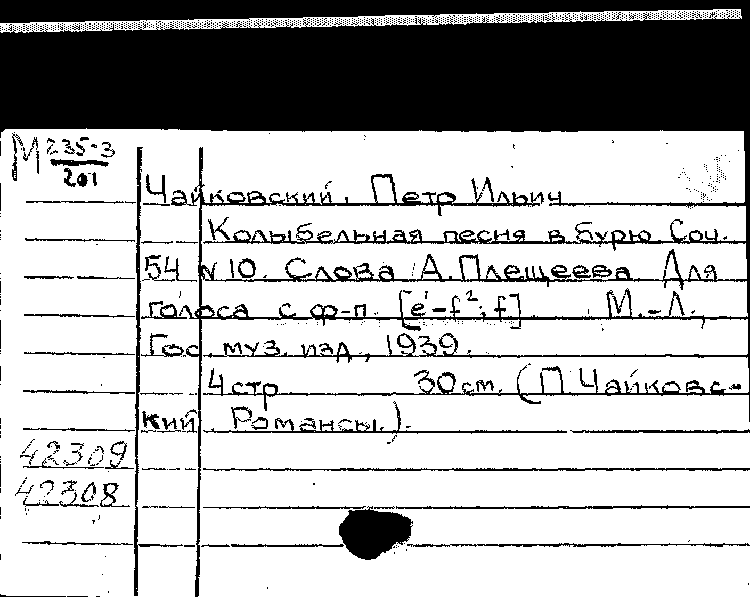 М 235-3
201
Чайковский, Петр Ильич
Колыбельная песня в бурю Соч.
54 № 10. Слова А. Плещеева Для
голоса с ф-п. [e¹-f²; f] М.-Л.,
Гос. муз. изд, 1939.
4 стр 30 см. (П. Чайковс-
кий. Романсы.).
42309
42308